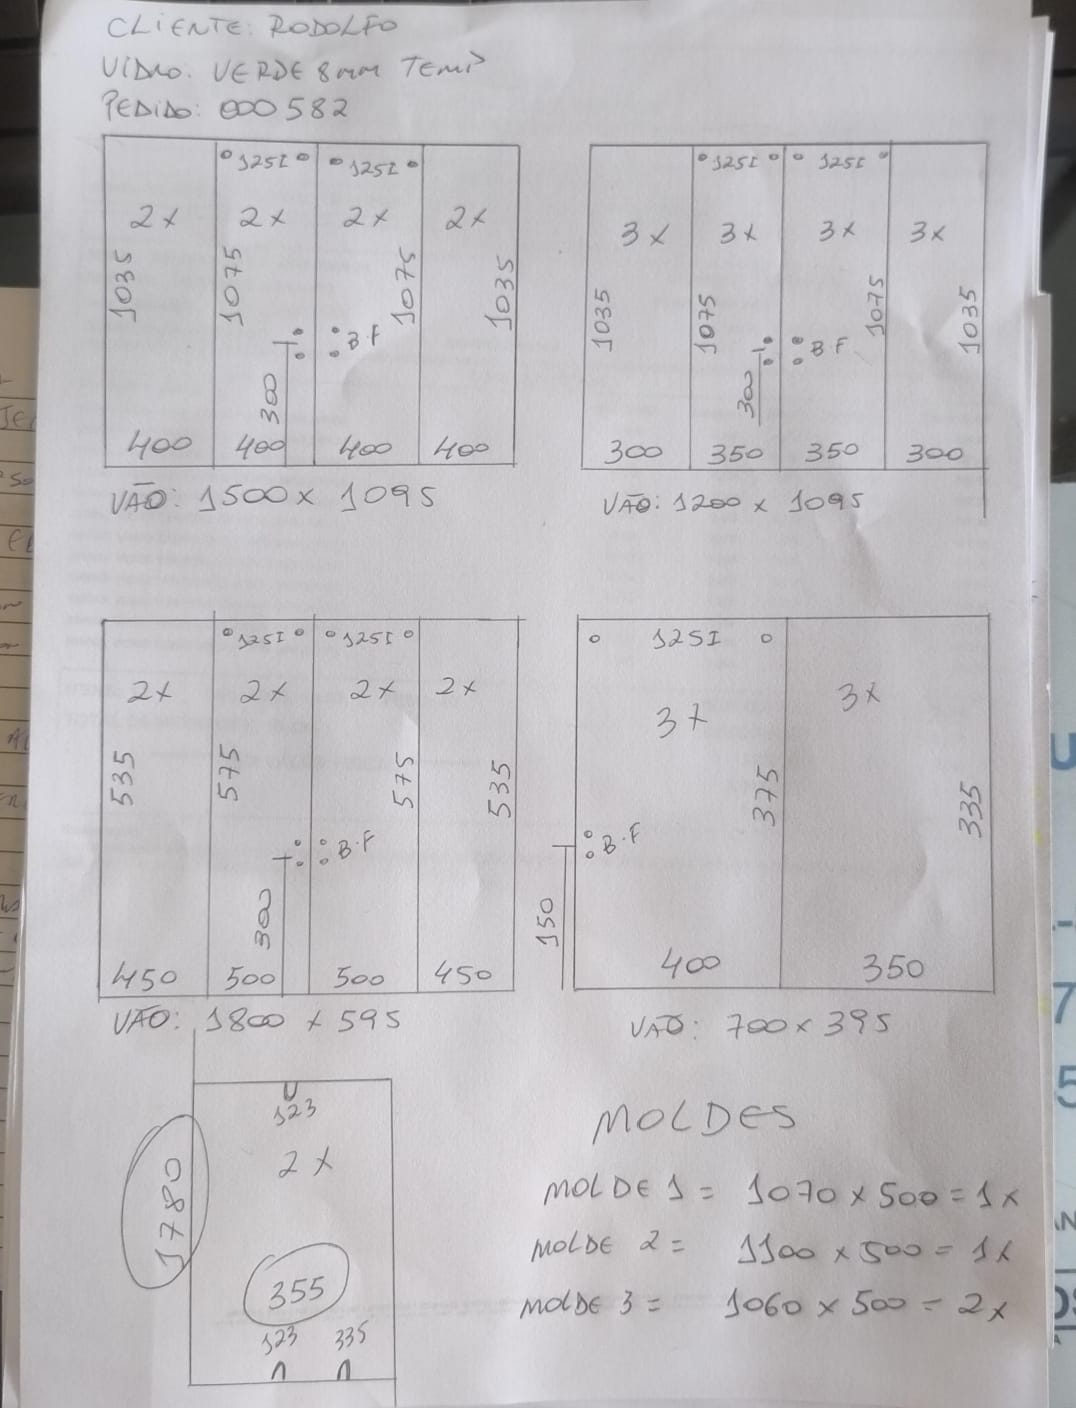 CLIENTE: RODOLFO
VIDRO: VERDE 8mm TEMP
PEDIDO: 000582
1251 1251
2x 2x 2x 2x
1035 1075 1075 1035
B.F
300
400 400 400 400
VÃO: 1500 x 1095
1251 1251
3x 3x 3x 3x
1035 1075 1075 1035
B.F
300
300 350 350 300
VÃO: 1200 x 1095
1251 1251
2x 2x 2x 2x
535 575 575 535
B.F
300
450 500 500 450
VÃO: 1800 x 595
1251
3x 3x
375 335
B.F
150
400 350
VÃO: 700 x 395
123
2x
1780
355
123 335
MOLDES
MOLDE 1 = 1070 x 500 = 1x
MOLDE 2 = 1100 x 500 = 1x
MOLDE 3 = 1060 x 500 = 2x